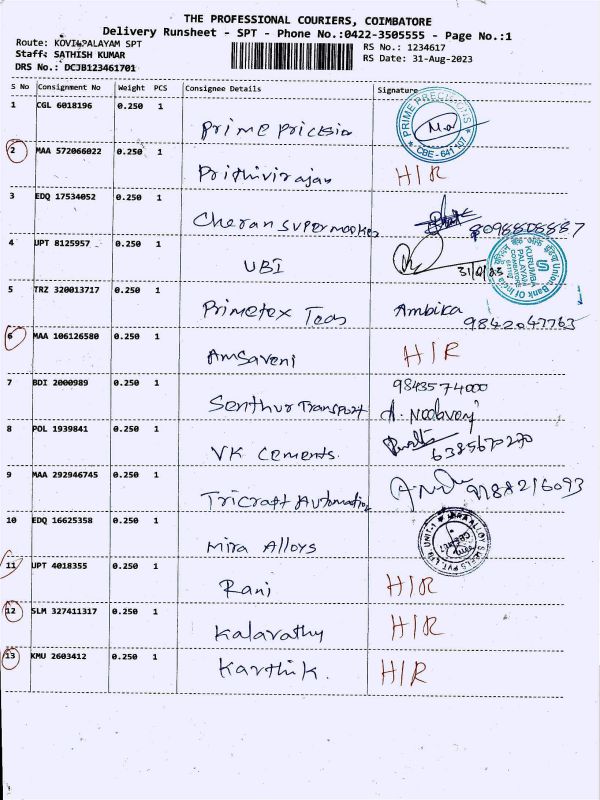 THE PROFESSIONAL COURIERS, COIMBATORE
Delivery Runsheet - SPT - Phone No.:0422-3505555 - Page No.:1
Route: KOVILPALAYAM SPT
RS No.: 1234617
Staff: SATHISH KUMAR
RS Date: 31-Aug-2023
DRS No.: DCJB123461701
S No Consignment No Weight PCS Consignee Details Signature
1 CGL 6018196 0.250 1
Prime Pricsio
PRIME PRECISIONS
CBE - 641 107
2 MAA 572066022 0.250 1
Prithivirajan H/R
3 EDQ 17534052 0.250 1
Cheran supermarket 8098808887
4 UPT 8125957 0.250 1
UBI
Union Bank Of India
KURUMBA
PALAYAM
COIMBATORE
5 TRZ 320013717 0.250 1
Primetex Teas Ambika
9842047763
6 MAA 106126580 0.250 1
Amsaveni H/R
7 BDI 2000989 0.250 1
9843574000
Senthur Transport
8 POL 1939841 0.250 1
VK Cements. 6385670270
9 MAA 292946745 0.250 1
Tricraft Automation 9788216093
10 EDQ 16625358 0.250 1
Mira Alloys
MIRA ALLOY STEELS PVT. LTD. UNIT-1
11 UPT 4018355 0.250 1
Rani H/R
12 SLM 327411317 0.250 1
Kalavathy H/R
13 KMU 2603412 0.250 1
Karthik. H/R